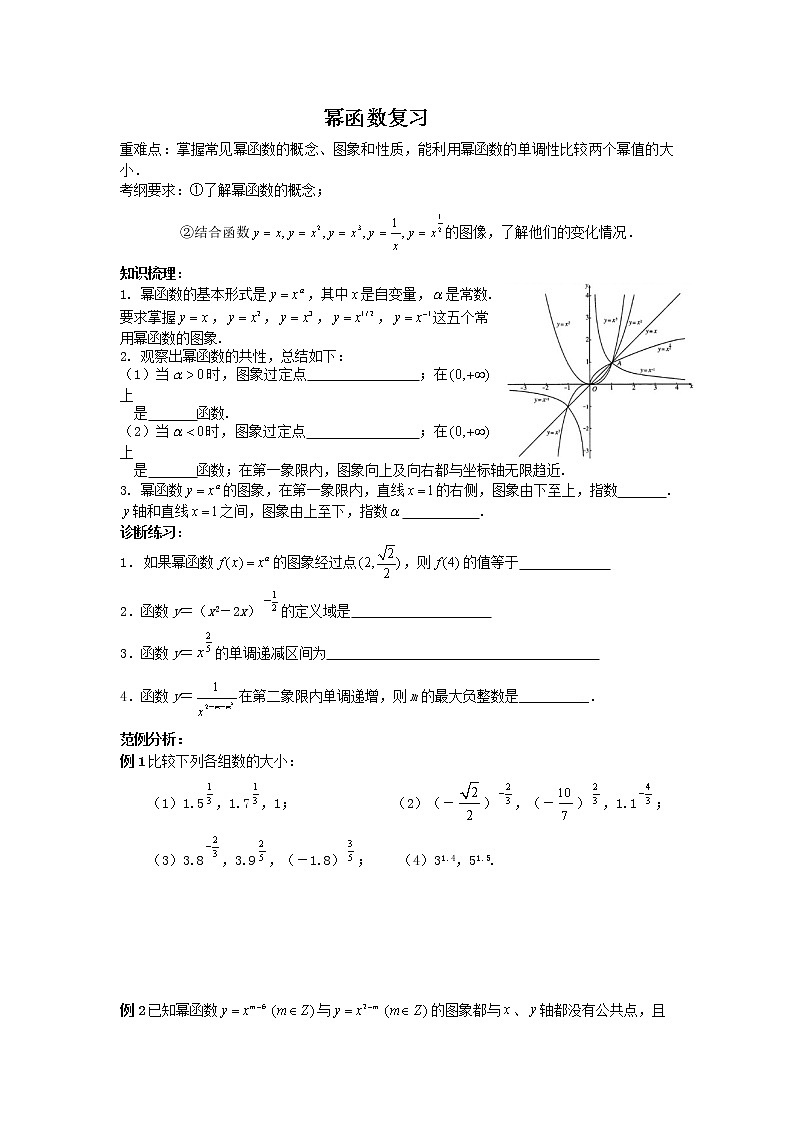 幂函数复习
重难点：掌握常见幂函数的概念、图象和性质，能利用幂函数的单调性比较两个幂值的大
小．
考纲要求：①了解幂函数的概念；
②结合函数 y = x, y = x², y = x³, y = 1/x, y = x^(1/2) 的图像，了解他们的变化情况．
知识梳理：
1. 幂函数的基本形式是 y = x^α，其中 x 是自变量，α 是常数.
要求掌握 y = x，y = x²，y = x³，y = x^(1/2)，y = x^(-1) 这五个常
用幂函数的图象.
2. 观察出幂函数的共性，总结如下：
（1）当 α > 0 时，图象过定点________________；在 (0,+∞)
上
是_______函数.
（2）当 α < 0 时，图象过定点________________；在 (0,+∞)
上
是_______函数；在第一象限内，图象向上及向右都与坐标轴无限趋近.
3. 幂函数 y = x^α 的图象，在第一象限内，直线 x = 1 的右侧，图象由下至上，指数_______.
y 轴和直线 x = 1 之间，图象由上至下，指数 α ___________.
诊断练习：
1. 如果幂函数 f(x) = x^α 的图象经过点 (2, √2/2)，则 f(4) 的值等于_____________
2．函数 y＝（x²－2x）^(-1/2) 的定义域是____________________
3．函数 y＝ x^(2/5) 的单调递减区间为_______________________________________
4．函数 y＝ 1/x^(2-m-m²) 在第二象限内单调递增，则 m 的最大负整数是__________．
范例分析：
例 1 比较下列各组数的大小：
（1）1.5^(1/3)，1.7^(1/3)，1； （2）（－√2/2）^(-2/3)，（－10/7）^(2/3)，1.1^(-4/3)；
（3）3.8^(-2/3)，3.9^(2/5)，（－1.8）^(3/5)； （4）3^1.4，5^1.5.
例 2 已知幂函数 y = x^(m-6) (m∈Z) 与 y = x^(2-m) (m∈Z) 的图象都与 x、y 轴都没有公共点，且